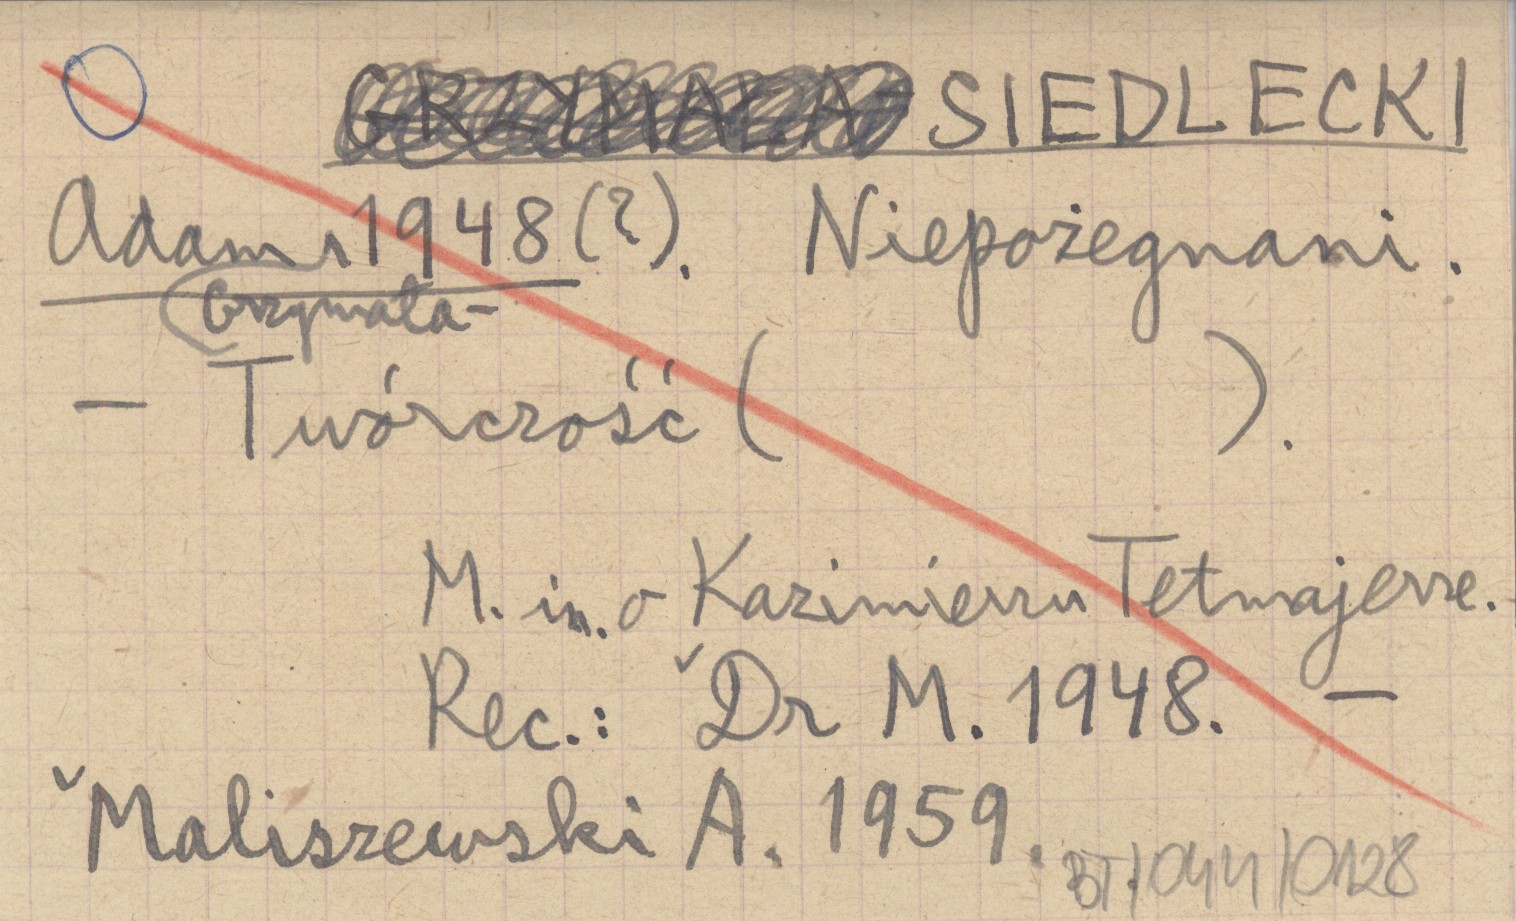 GRZYMAŁA-SIEDLECKI
Adam 1948(?). Niepożegnani.
Grzymała-
— Twórczość ( ).
M. in. o Kazimierzu Tetmajerze.
Rec.: Dr M. 1948. —
Maliszewski A. 1959.
BT/044/0128